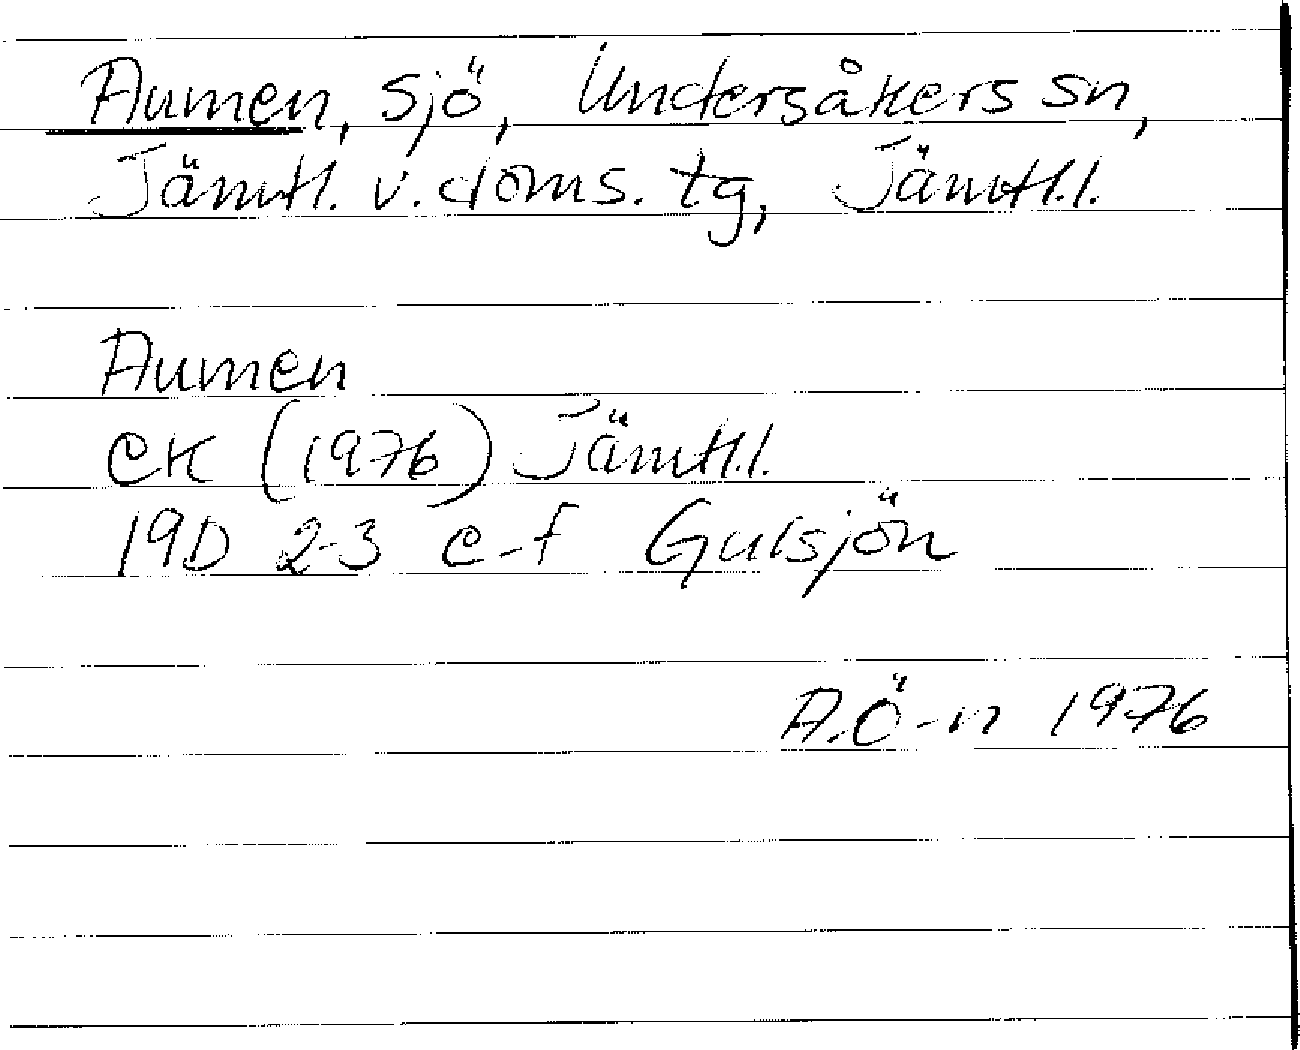 Aumen, sjö, Undersåkers sn,
Jämtl. v. doms. tg, Jämtl.l.
Aumen
EK (1976) Jämtl.l.
19D 2-3 e-f Gulsjön
A.Ö-n 1976